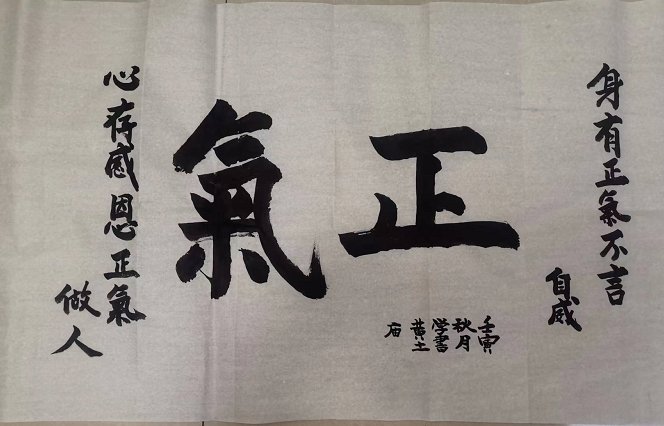 身有正氣不言
自威
正氣
心存感恩正氣
做人
壬寅
秋月
学書
黄土
庙